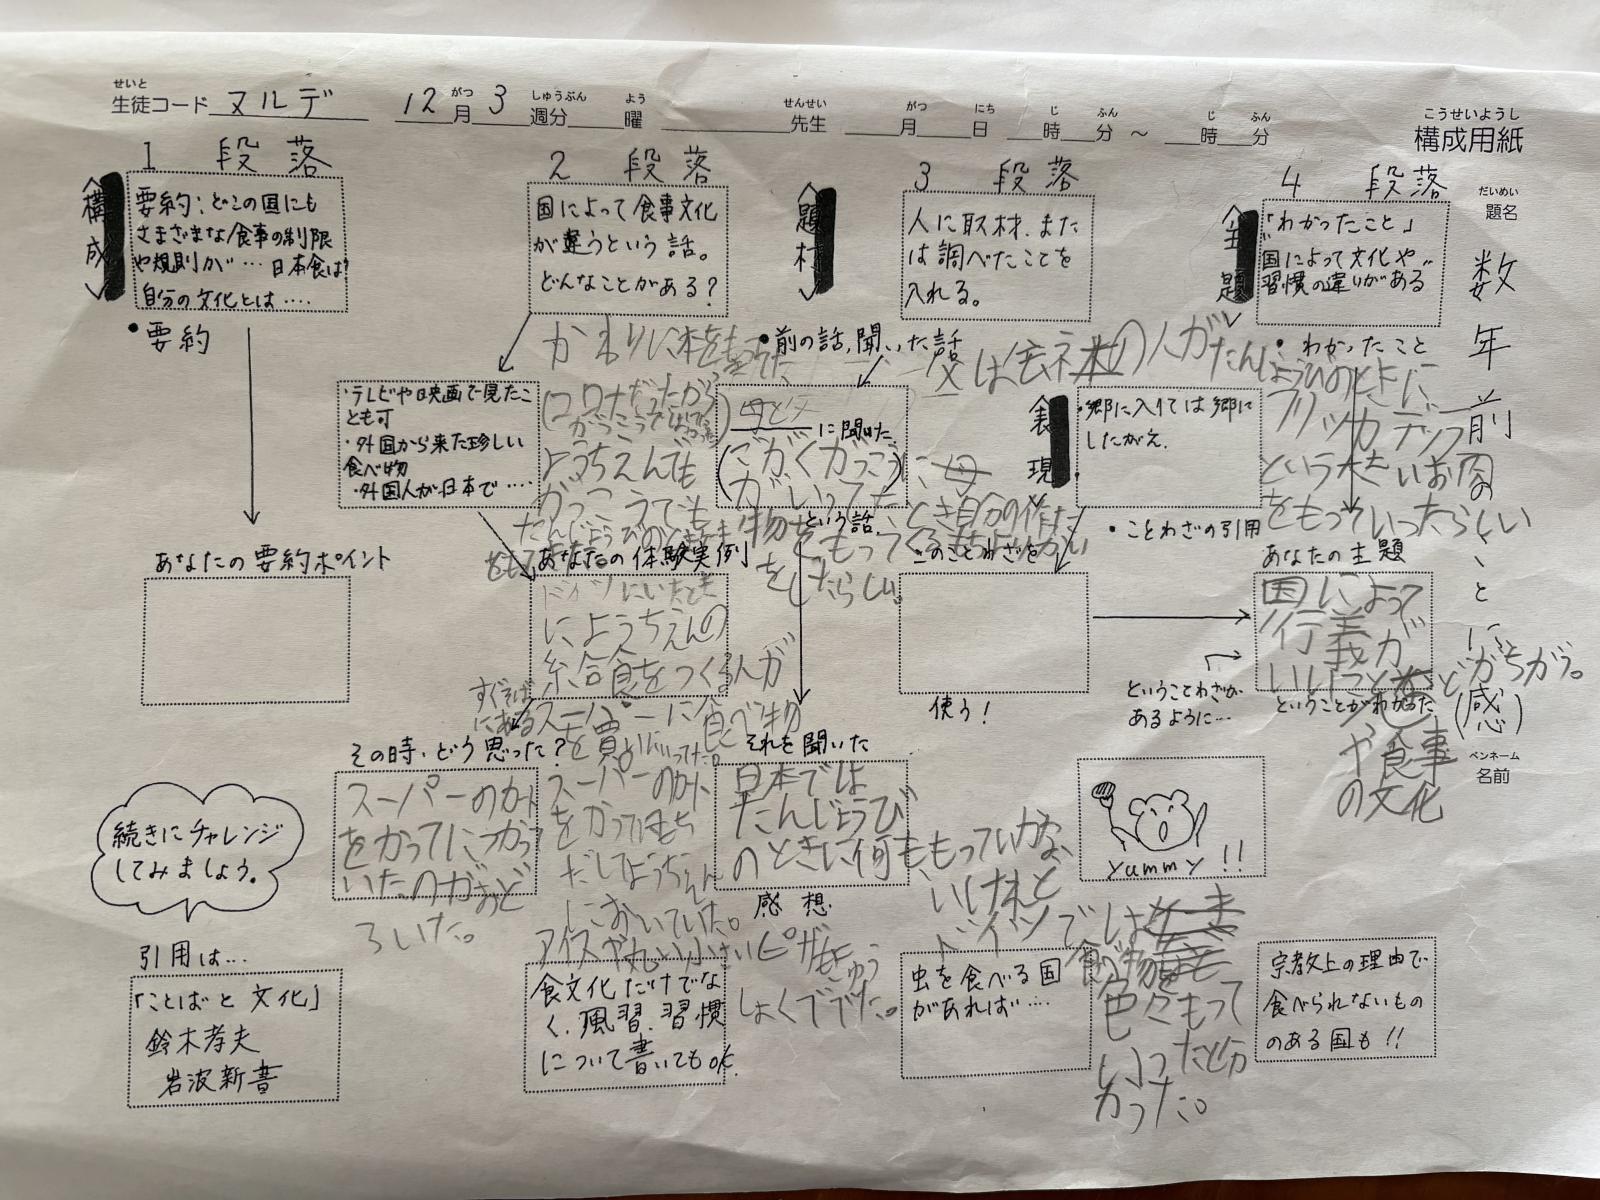 せいと
生徒コード ヌルデ 12月 3週分 曜 先生 月 日 時 分 〜 時 分
がつ しゅうぶん よう せんせい がつ にち じ ふん じ ふん
こうせいようし
構成用紙
だいめい
題名
数年前のこと
ペンネーム
名前
1 段落
構成
要約:どこの国にも
さまざまな食事の制限
や規則が…日本食は?
自分の文化とは….
・要約
あなたの要約ポイント
続きにチャレンジ
してみましょう。
引用は…
「ことばと文化」
鈴木孝夫
岩波新書
2 段落
国によって食事文化
が違うという話。
どんなことがある?
・テレビや映画で見たこ
とも可
・外国から来た珍しい
食べ物
・外国人が日本で….
かわりに本を
ようちえんでも
がっこうでも
たんじょうびのとき
あなたの体験実例
ドイツにいたとき
にようちえんの
給食をつくる人が
すぐそば
にあるスーパーに食べ物
を買いにいってた。
スーパーのカート
をかってにもち
だしてようちえん
においていた。
アイスや丸い小さいピザもきゅう
しょくででた。
その時、どう思った?
スーパーのカート
をかってにつかって
いたのがおど
ろいた。
食文化だけでな
く、風習、習慣
について書いてもOK.
3 段落
題材
人に取材、また
は調べたことを
入れる。
・前の話、聞いた話
母と父
に聞いた
という話
父は会社の人がたんじょうびのときに
フリッカデッラ
という大きいお肉
をもっていったらしい
をしたらしい。
それを聞いた
日本では
たんじょうび
のときに何ももっていかな
いけれど
ドイツでは
食べ物など
色々もって
いったと分
かった。
感想
表現
・郷に入りては郷に
したがえ.
・ことわざの引用
このことわざを
使う!
虫を食べる国
があれば….
4 段落
主題
「わかったこと」
国によって文化や
習慣の違いがある
・わかったこと
あなたの主題
国によって
行義が
いいことなどがちがう。
ということがわかった(感)
や食事
の文化
ということわざが
あるように…
yummy!!
宗教上の理由で
食べられないもの
のある国も!!